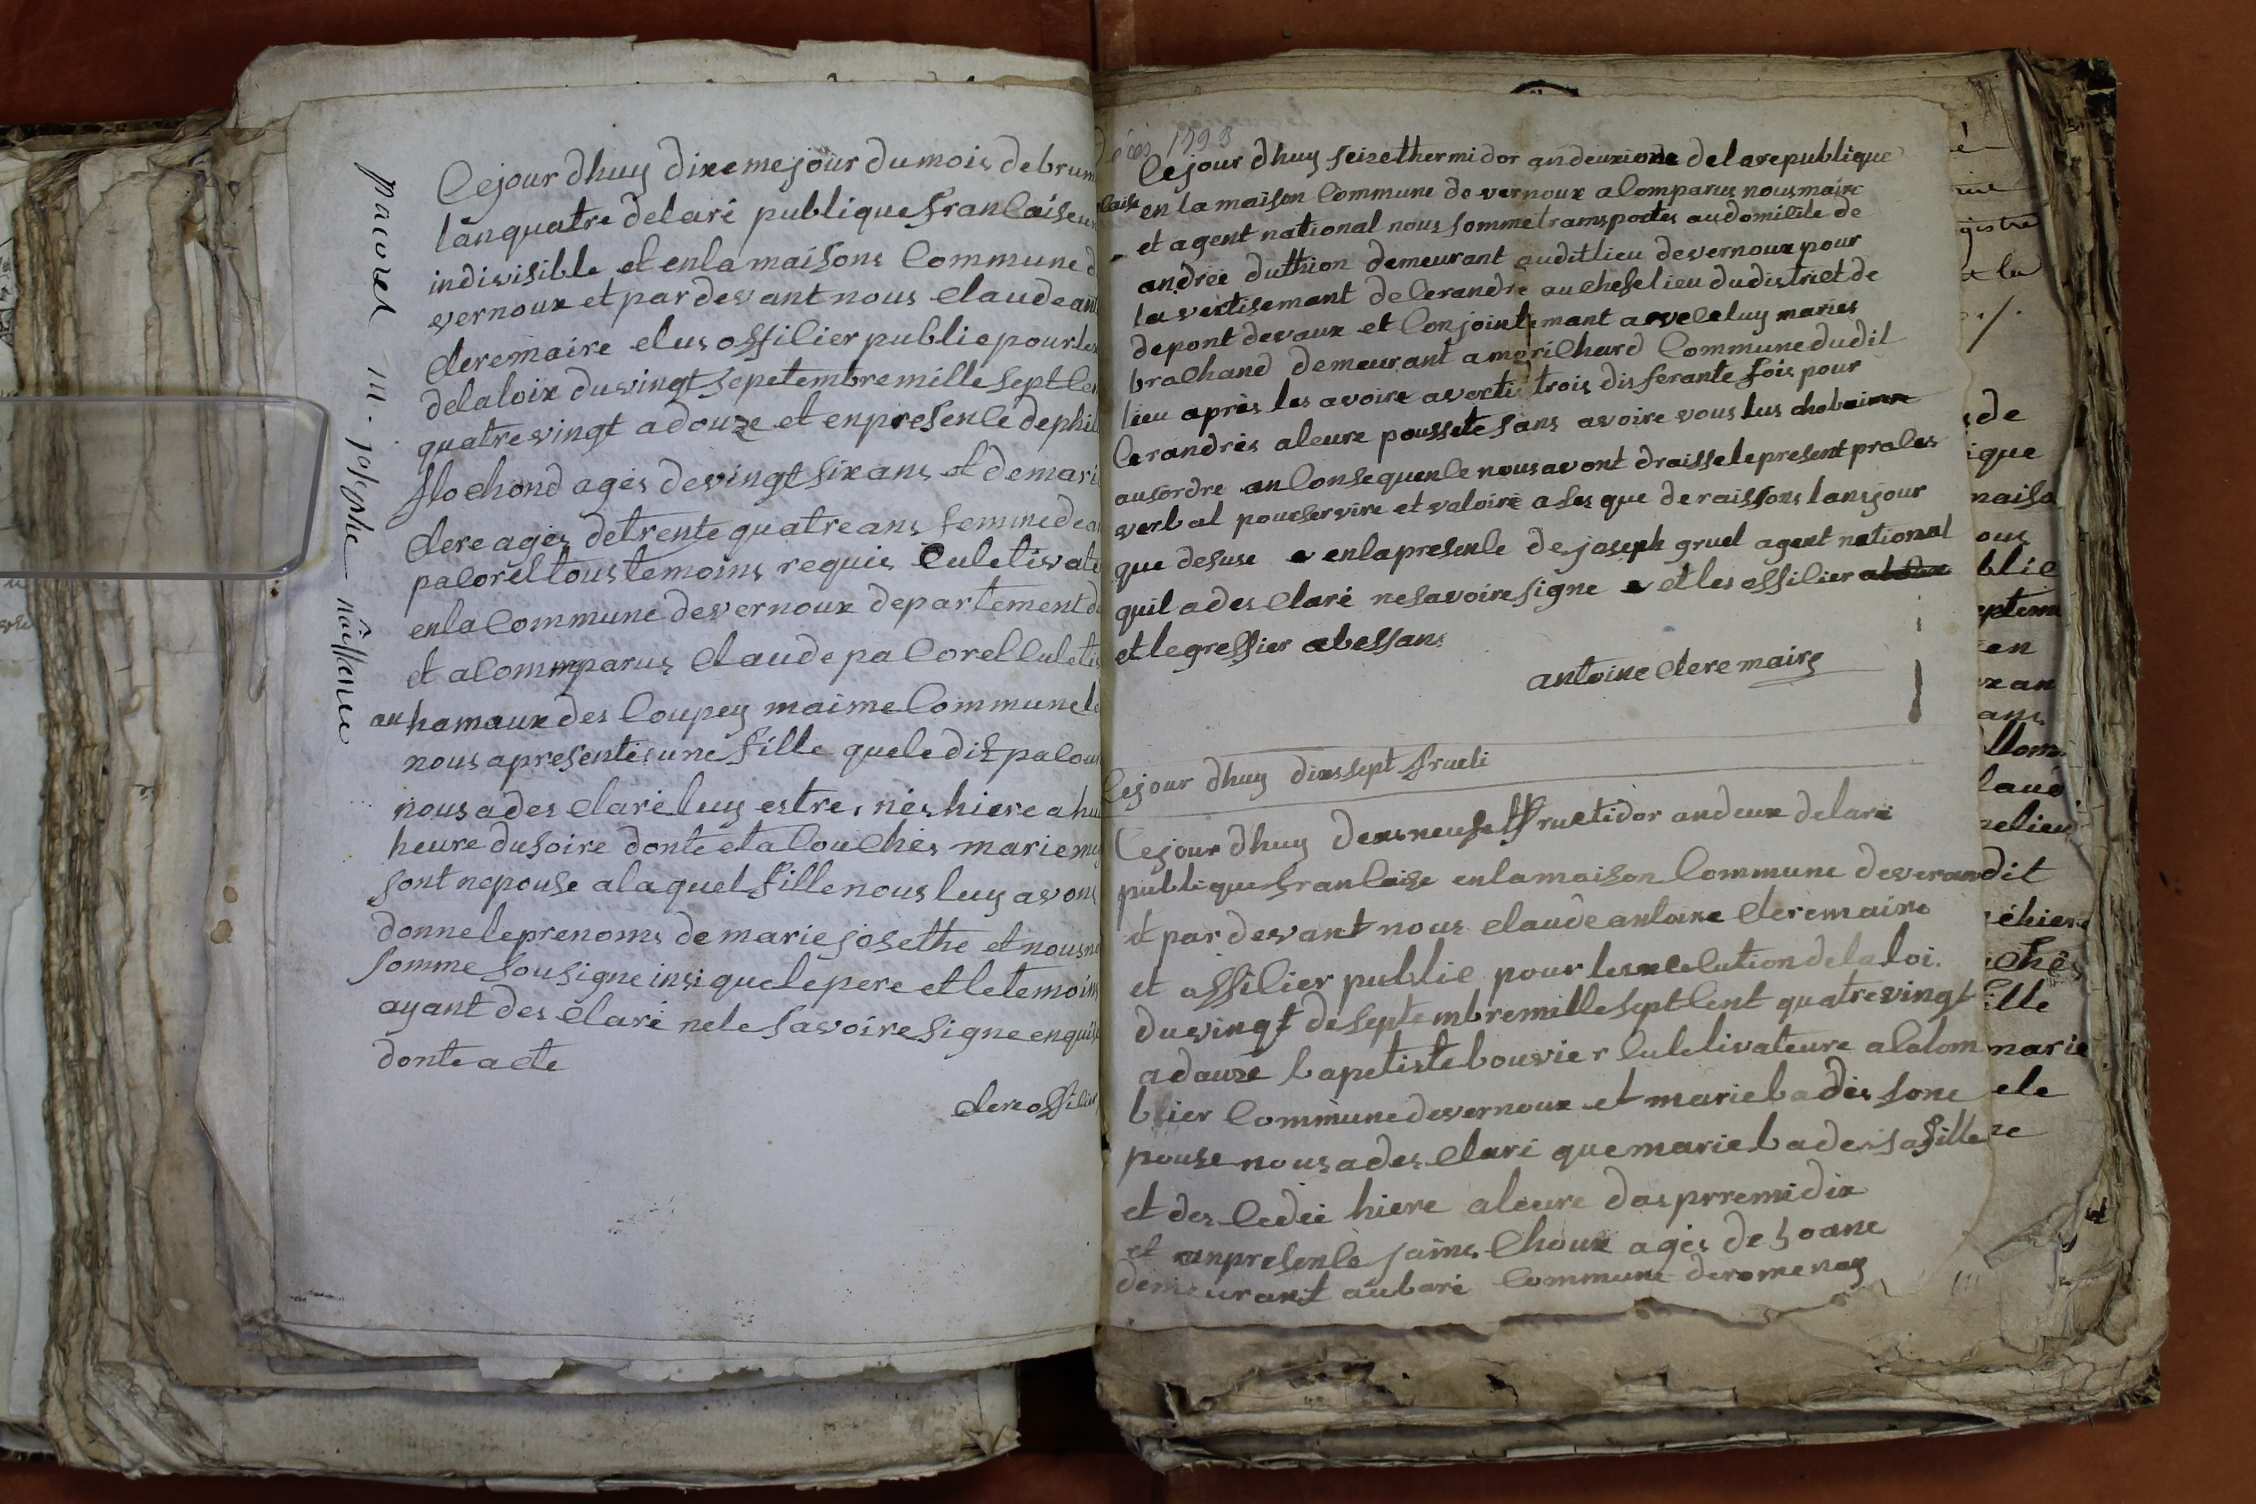 pacorel m. josephe naissence
Cejour dhuy dixe me jour du mois de brum
lan quatre de la ré publique francaise un
indivisible et en la maisons Commune d
vernoux et par devant nous Claude ant
clere maire elus officier public pour les
de la loix du vingt sepetembre mille sept cen
quatre vingt a douze et en presence de phil
flochond agés de vingt six ans et de mari
clere agés de trente quatre ans femme de
pacorel tous temoins requis culetivate
en la Commune de vernoux departement d
et a commparus Claude pacorel culeti
au hamaux des Coupey maime Commune le
nous a presentés une fille que le dit pacor
nous a des claré luy estre nés hiere a hui
heure du soire donte et acouchés marie
sont nepouse a la quel fille nous luy avons
donne le prenoms de marie josethe et nous
somme sousigne insi que le pere et le temoins
ayant des claré ne le savoire signe enquis
donte acte
clere officier
décès 1793
Cejour dhuy seize thermidor an deuxieme de la republique
caise en la maison Commune de vernoux a Comparus nous maire
et agent national nous somme transportes au domicile de
andrée duthion demeurant audit lieu de vernoux pour
la vertisemant de ce randre au chefe lieu du district de
de pont de vaux et Conjointemant avece luy maries
brachand demeurant a morichard Commune du dit
lieu après les avoire averti trois disferante fois pour
ce randrés a leure poussete sans avoire vous lus
aus ordre an Consequence nous avont draisse le present proces
verbal pouer servire et valoire a ses que de raissons lans jour
que desuse en la presence de joseph gruel agent national
quil a des claré ne savoire signe et les officier
et le greffier abessans
antoine clere maire
Cejour dhuy dixs sept fructi
Cejour dhuy dexs neufe fructidor an deux de la ré
publique francaise en la maison Commune de vernou
et par devant nous claude antoine clere maire
et officier public pour lexecution de la loi
du vingt de septembre mille sept cent quatre vingt
a douze bapetiste bouvier culetivateure a la Com
blier Commune de vernoux et marie bades sone
pouse nous a des claré que marie bades sa fille
et des cedée hiere a leure das prremidix
et an presence james Choux agés de 50 ane
demeurant au baré Commune de romenay
gistre
et la
de
ique
maiso
ous
blic
eptem
en
ans
dit
ille
marie